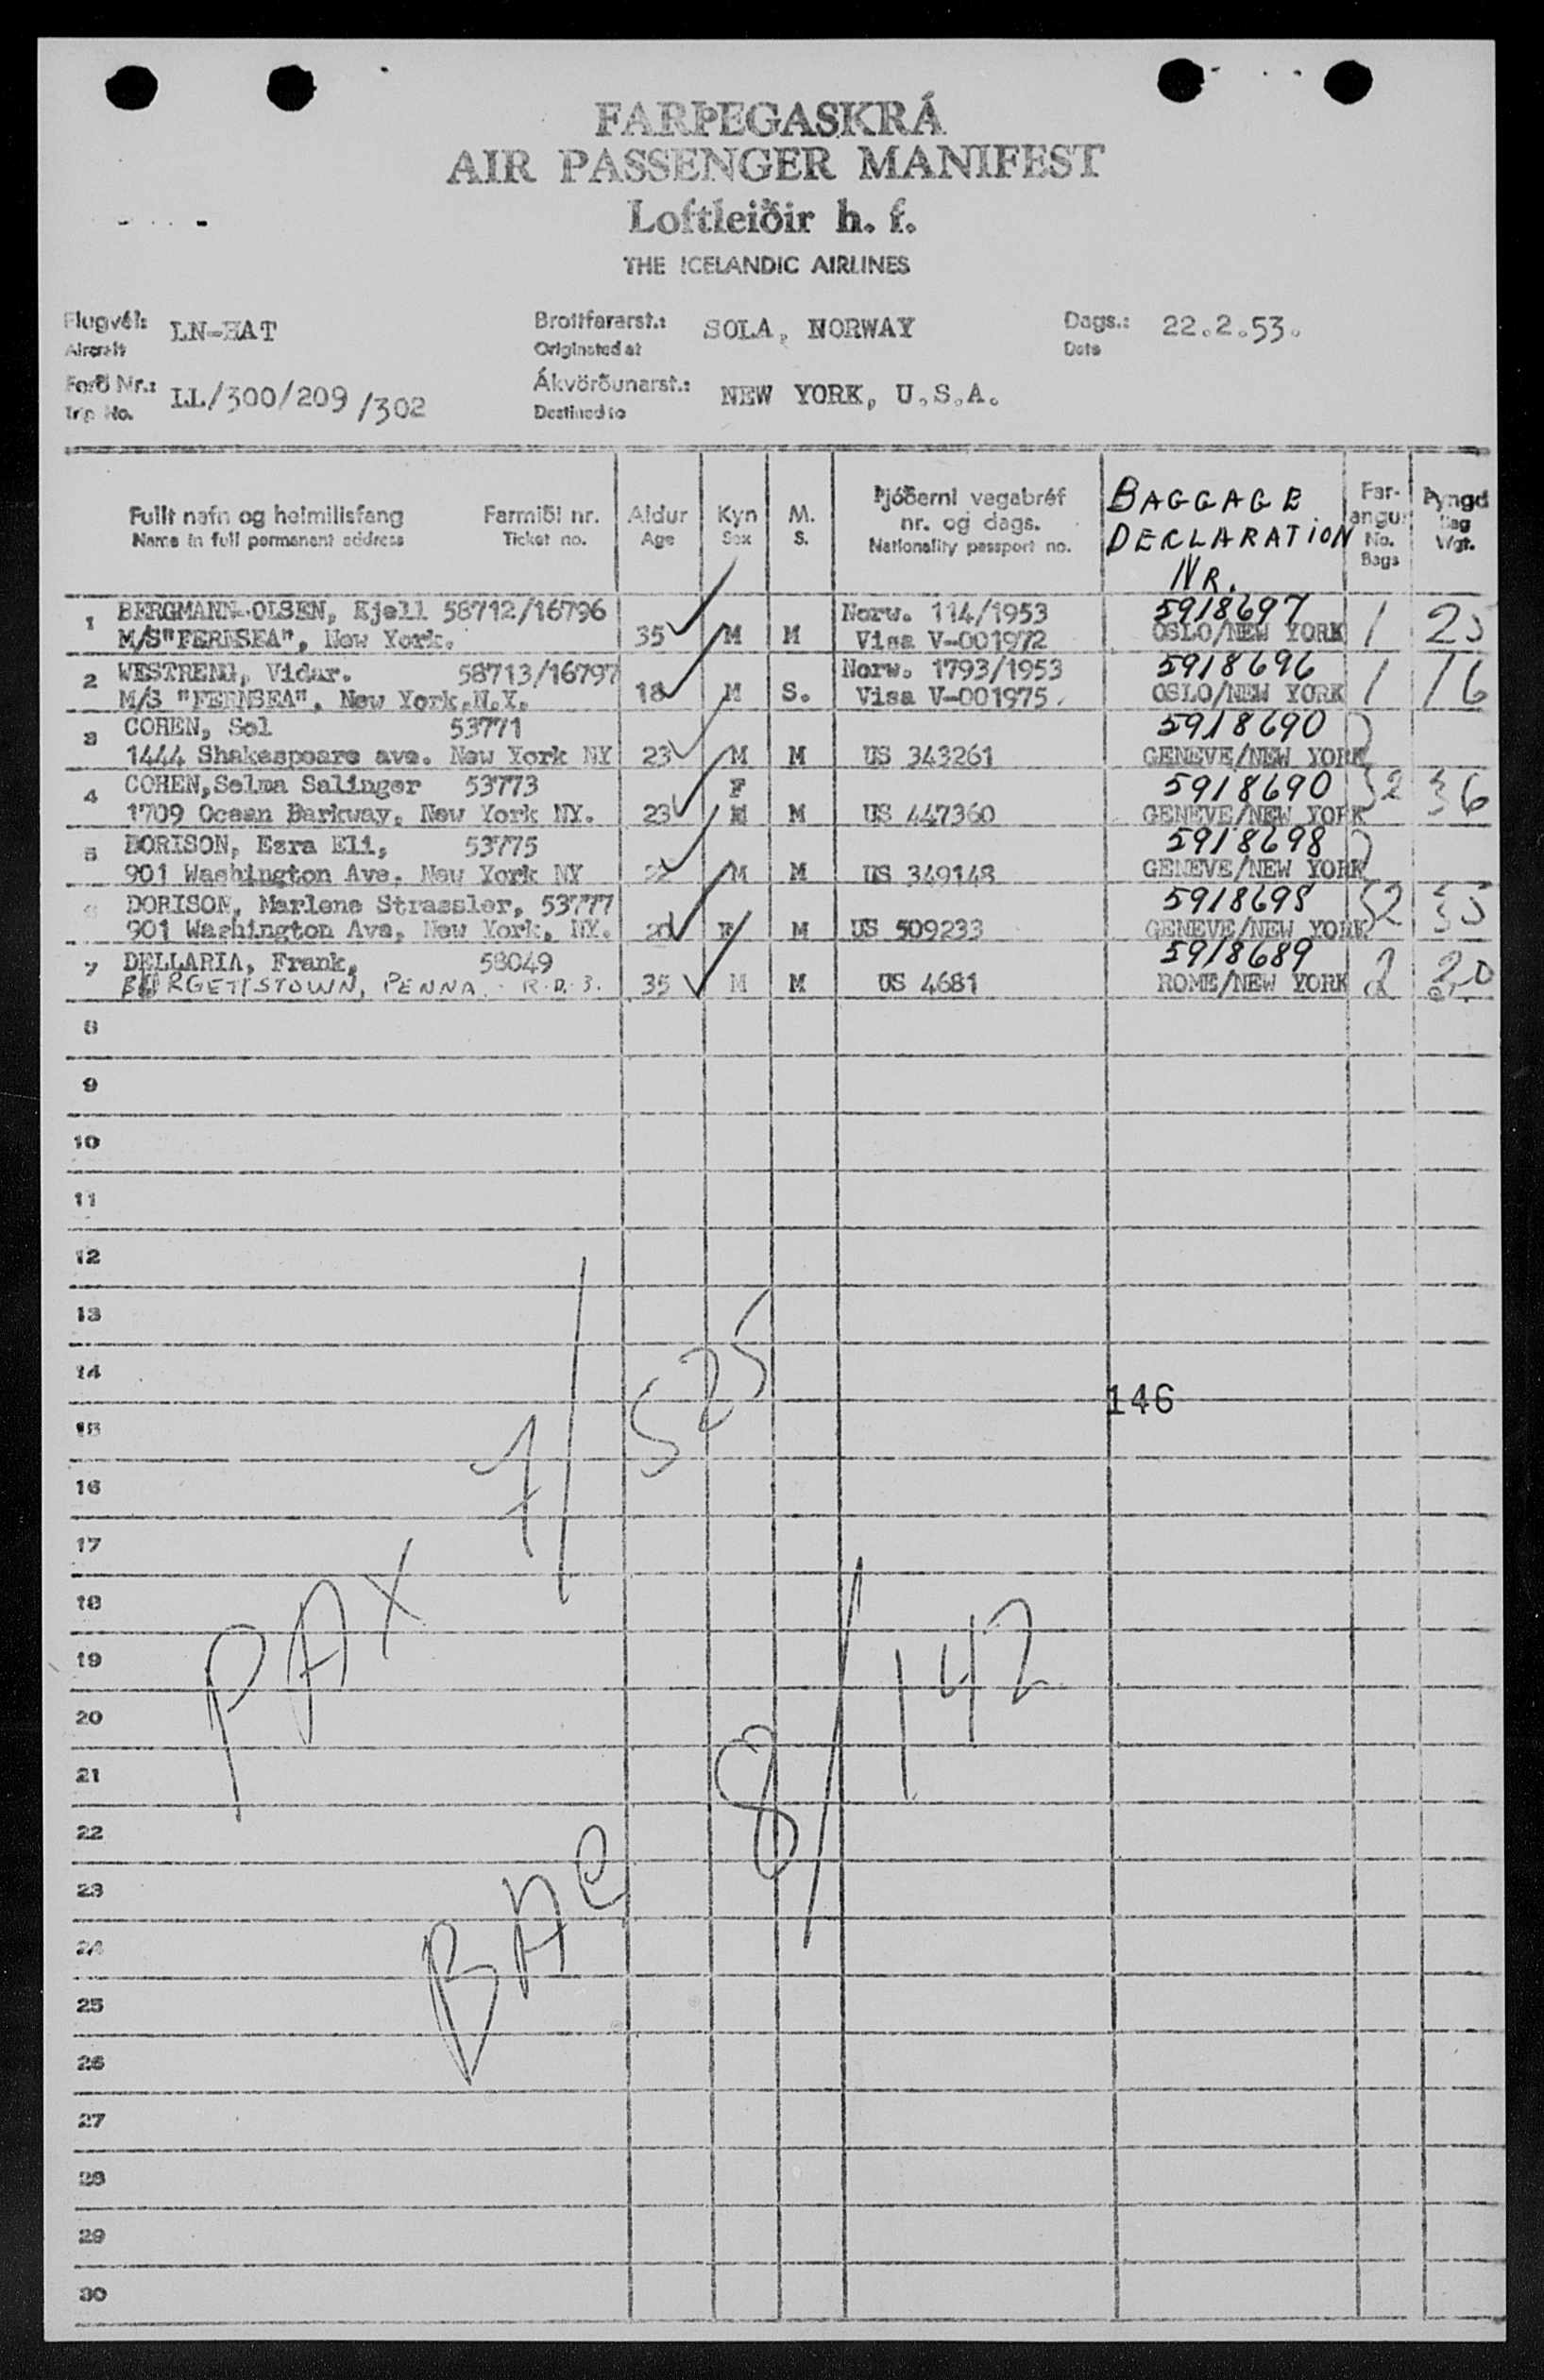 FARÞEGASKRÁ
AIR PASSENGER MANIFEST
Loftleiðir h. f.
THE ICELANDIC AIRLINES
Flugvél: LN-HAT Brottfararst.: SOLA, NORWAY Dags.: 22.2.53.
Aircraft Originated at Date
Ferð Nr.: LL/300/209/302 Ákvörðunarst.: NEW YORK, U.S.A.
Trip No. Destined to
Fullt nafn og heimilisfang Farmiði nr. Aldur Kyn M. Þjóðerni vegabréf nr. og dags. BAGGAGE DECLARATION NR. Far-angur Þyngd
Name in full permanent address Ticket no. Age Sex S. Nationality passport no. No. Bags Bag Wgt.
1 BERGMANN-OLSEN, Kjell 58712/16796 Norw. 114/1953 5918697
M/S"FERNSEA", New York. 35 M M Visa V-001972 OSLO/NEW YORK 1 25
2 WESTRENG, Vidar. 58713/16797 Norw. 1793/1953 5918696
M/S "FERNSEA", New York,N.Y. 18 M S. Visa V-001975. OSLO/NEW YORK 1 16
3 COHEN, Sol 53771 5918690
1444 Shakespeare ave. New York NY 23 M M US 343261 GENEVE/NEW YORK
4 COHEN,Selma Salinger 53773 F 5918690 2 36
1709 Ocean Parkway, New York NY. 23 M M US 447360 GENEVE/NEW YORK
5 DORISON, Ezra Eli, 53775 5918698
901 Washington Ave. New York NY 22 M M US 349148 GENEVE/NEW YORK
6 DORISON, Marlene Strassler, 53777 5918698 2 35
901 Washington Ave, New York, NY. 20 F M US 509233 GENEVE/NEW YORK
7 DELLARIA, Frank, 58049 5918689
BURGETTSTOWN, PENNA. R.D.3. 35 M M US 4681 ROME/NEW YORK 2
8
9
10
11
12
13
14
146
15
16
17
18
19
20
21
22
23
24
25
26
27
28
29
30
PAX 7/525
BAG 8/142